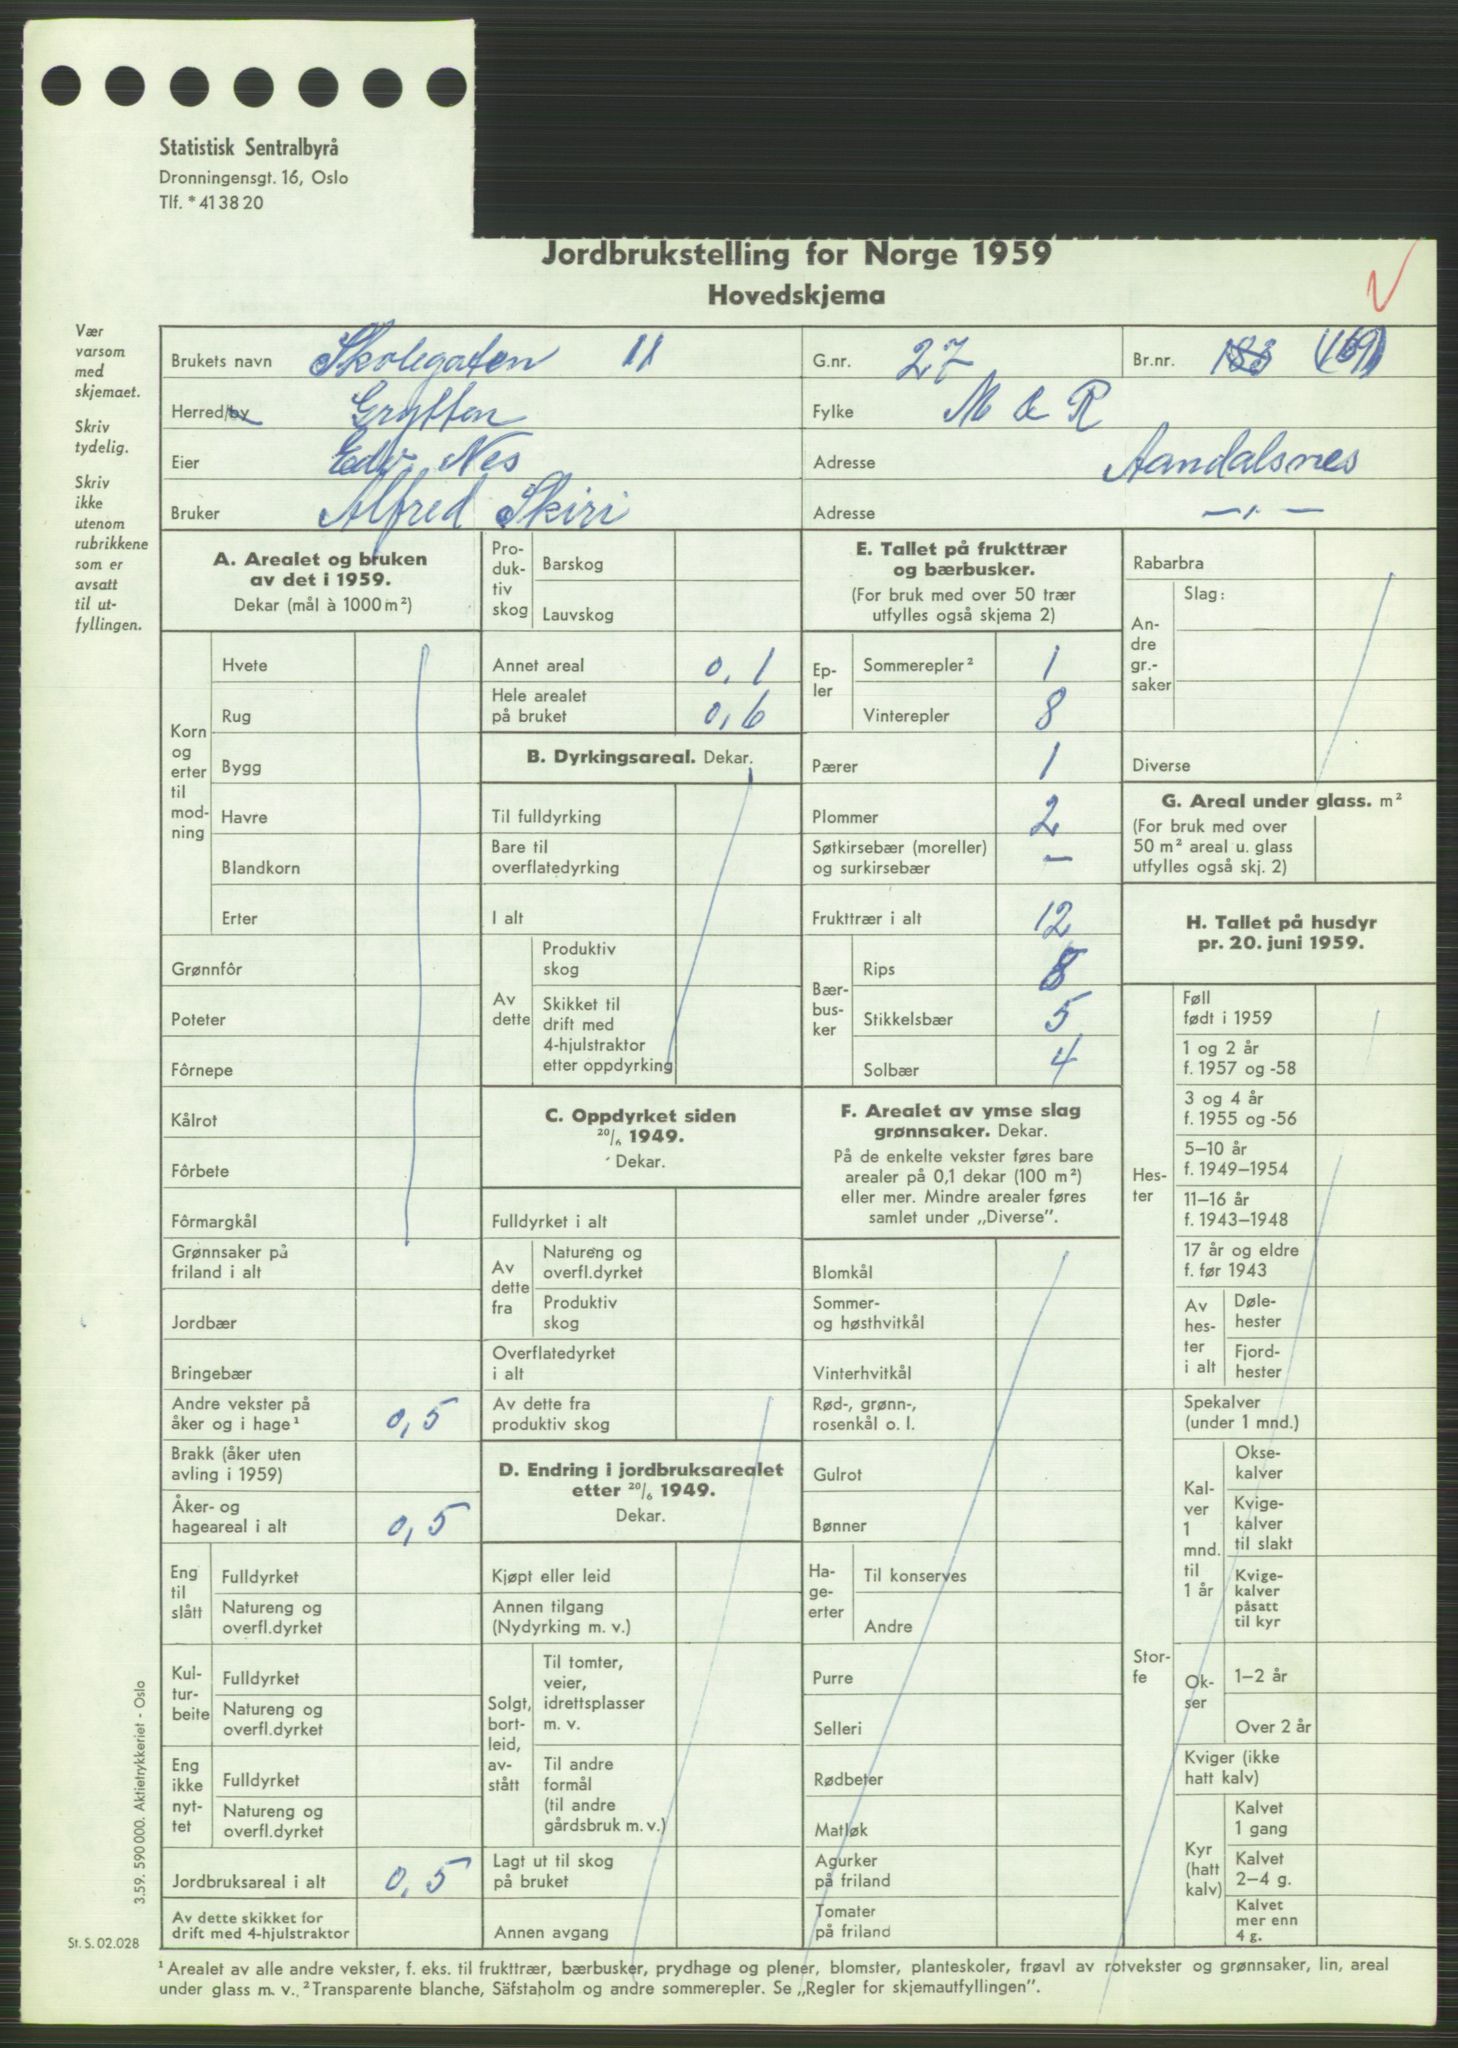 Statistisk Sentralbyrå
Dronningensgt. 16, Oslo
Tlf. * 41 38 20
Jordbrukstelling for Norge 1959
Hovedskjema
Vær
varsom
med
skjemaet.
Skriv
tydelig.
Skriv
ikke
utenom
rubrikkene
som er
avsatt
til ut-
fyllingen.
Brukets navn Skolegaten 11 G.nr. 27 Br.nr. 183 (169)
Herred/by Grytten Fylke M & R
Eier Edv. Nes Adresse Aandalsnes
Bruker Alfred Skiri Adresse — " —
A. Arealet og bruken
av det i 1959.
Dekar (mål à 1000 m²)
Korn
og
erter
til
mod-
ning
Hvete
Rug
Bygg
Havre
Blandkorn
Erter
Grønnfôr
Poteter
Fôrnepe
Kålrot
Fôrbete
Fôrmargkål
Grønnsaker på
friland i alt
Jordbær
Bringebær
Andre vekster på
åker og i hage¹ 0,5
Brakk (åker uten
avling i 1959)
Åker- og
hageareal i alt 0,5
Eng
til
slått
Fulldyrket
Natureng og
overfl.dyrket
Kul-
tur-
beite
Fulldyrket
Natureng og
overfl.dyrket
Eng
ikke
nyt-
tet
Fulldyrket
Natureng og
overfl.dyrket
Jordbruksareal i alt 0,5
Av dette skikket for
drift med 4-hjulstraktor
Pro-
duk-
tiv
skog
Barskog
Lauvskog
Annet areal 0,1
Hele arealet
på bruket 0,6
B. Dyrkingsareal. Dekar.
Til fulldyrking
Bare til
overflatedyrking
I alt
Av
dette
Produktiv
skog
Skikket til
drift med
4-hjulstraktor
etter oppdyrking
C. Oppdyrket siden
20/6 1949.
Dekar.
Fulldyrket i alt
Av
dette
fra
Natureng og
overfl.dyrket
Produktiv
skog
Overflatedyrket
i alt
Av dette fra
produktiv skog
D. Endring i jordbruksarealet
etter 20/6 1949.
Dekar.
Kjøpt eller leid
Annen tilgang
(Nydyrking m. v.)
Solgt,
bort-
leid,
av-
stått
Til tomter,
veier,
idrettsplasser
m. v.
Til andre
formål
(til andre
gårdsbruk m. v.)
Lagt ut til skog
på bruket
Annen avgang
E. Tallet på frukttrær
og bærbusker.
(For bruk med over 50 trær
utfylles også skjema 2)
Ep-
ler
Sommerepler² 1
Vinterepler 8
Pærer 1
Plommer 2
Søtkirsebær (moreller)
og surkirsebær —
Frukttrær i alt 12
Bær-
bus-
ker
Rips 8
Stikkelsbær 5
Solbær 4
F. Arealet av ymse slag
grønnsaker. Dekar.
På de enkelte vekster føres bare
arealer på 0,1 dekar (100 m²)
eller mer. Mindre arealer føres
samlet under „Diverse”.
Blomkål
Sommer-
og høsthvitkål
Vinterhvitkål
Rød-, grønn-,
rosenkål o. l.
Gulrot
Bønner
Ha-
ge-
erter
Til konserves
Andre
Purre
Selleri
Rødbeter
Matløk
Agurker
på friland
Tomater
på friland
Rabarbra
An-
dre
gr.-
saker
Slag:
Diverse
G. Areal under glass. m²
(For bruk med over
50 m² areal u. glass
utfylles også skj. 2)
H. Tallet på husdyr
pr. 20. juni 1959.
Hes-
ter
Føll
født i 1959
1 og 2 år
f. 1957 og -58
3 og 4 år
f. 1955 og -56
5–10 år
f. 1949–1954
11–16 år
f. 1943–1948
17 år og eldre
f. før 1943
Av
hes-
ter
i alt
Døle-
hester
Fjord-
hester
Stor-
fe
Spekalver
(under 1 mnd.)
Kal-
ver
1
mnd.
til
1 år
Okse-
kalver
Kvige-
kalver
til slakt
Kvige-
kalver
påsatt
til kyr
Ok-
ser
1–2 år
Over 2 år
Kviger (ikke
hatt kalv)
Kyr
(hatt
kalv)
Kalvet
1 gang
Kalvet
2–4 g.
Kalvet
mer enn
4 g.
3.59. 590 000. Aktietrykkeriet - Oslo
St. S. 02.028
¹ Arealet av alle andre vekster, f. eks. til frukttrær, bærbusker, prydhage og plener, blomster, planteskoler, frøavl av rotvekster og grønnsaker, lin, areal
under glass m. v. ² Transparente blanche, Säfstaholm og andre sommerepler. Se „Regler for skjemautfyllingen”.